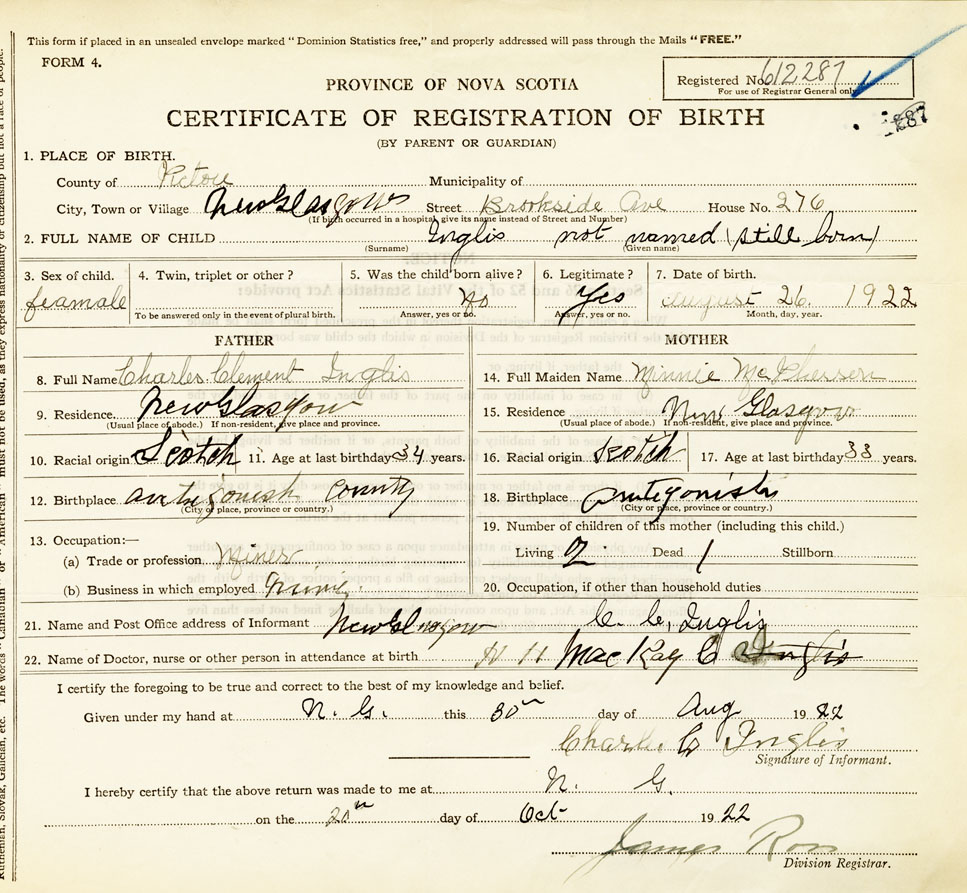 This form if placed in an unsealed envelope marked "Dominion Statistics free," and properly addressed will pass through the Mails "FREE."
FORM 4.
Registered No. 612287
For use of Registrar General only
PROVINCE OF NOVA SCOTIA
CERTIFICATE OF REGISTRATION OF BIRTH
(BY PARENT OR GUARDIAN)
1. PLACE OF BIRTH.
County of Pictou Municipality of
City, Town or Village New Glasgow Street Brookside Ave House No. 276
(If birth occurred in a hospital, give its name instead of Street and Number)
2. FULL NAME OF CHILD Inglis not named (still born)
(Surname) (Given name)
3. Sex of child. 4. Twin, triplet or other? 5. Was the child born alive? 6. Legitimate? 7. Date of birth.
feamale No Yes August 26 1922
To be answered only in the event of plural birth. Answer, yes or no. Answer, yes or no. Month, day, year.
FATHER MOTHER
8. Full Name Charles Clement Inglis 14. Full Maiden Name Minnie McPherson
9. Residence New Glasgow 15. Residence New Glasgow
(Usual place of abode.) If non-resident, give place and province. (Usual place of abode.) If non-resident, give place and province.
10. Racial origin Scotch 11. Age at last birthday 34 years. 16. Racial origin Scotch 17. Age at last birthday 33 years.
12. Birthplace antigonish County 18. Birthplace Antigonish
(City or place, province or country.) (City or place, province or country.)
19. Number of children of this mother (including this child.)
13. Occupation:—
(a) Trade or profession Miner Living 2 Dead 1 Stillborn
(b) Business in which employed 20. Occupation, if other than household duties
21. Name and Post Office address of Informant New Glasgow C. C. Inglis
22. Name of Doctor, nurse or other person in attendance at birth H H MacKay C Inglis
I certify the foregoing to be true and correct to the best of my knowledge and belief.
Given under my hand at N. G. this 30th day of Aug 1922
Charles C Inglis
Signature of Informant.
I hereby certify that the above return was made to me at N. G.
on the 20th day of Oct 1922
James Ross
Division Registrar.